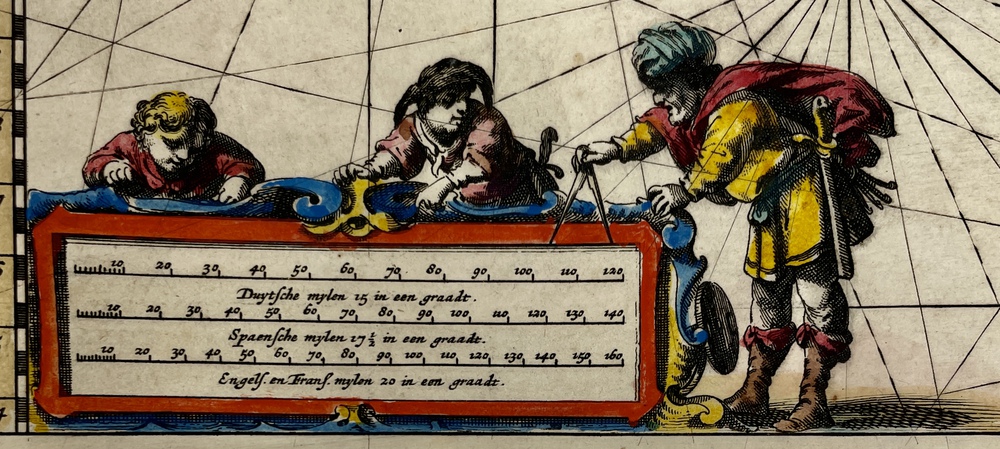 10 20 30 40 50 60 70 80 90 100 110 120
Duytsche mylen 15 in een graadt.
10 20 30 40 50 60 70 80 90 100 110 120 130 140
Spaensche mylen 17 1/2 in een graadt.
10 20 30 40 50 60 70 80 90 100 110 120 130 140 150 160
Engels. en Frans. mylen 20 in een graadt.